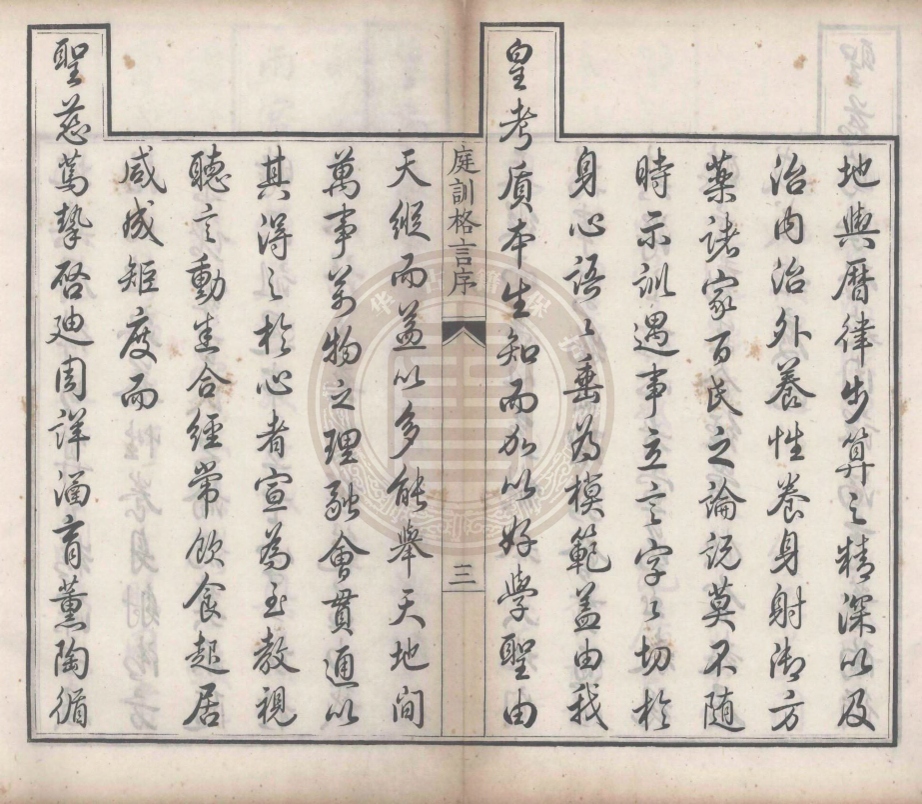 地輿曆律步算之精深以及
治内治外養性養身射御方
藥諸家百氏之論說莫不隨
時示訓遇事立言字字切於
身心語語垂為模範蓋由我
皇考質本生知而加以好學聖由
庭訓格言序
三
天縱而益以多能舉天地間
萬事萬物之理融會貫通以
其得之於心者宣為至教視
聽言動悉合經常飲食起居
咸成矩度而
聖慈篤摯啓迪周詳涵育薰陶循